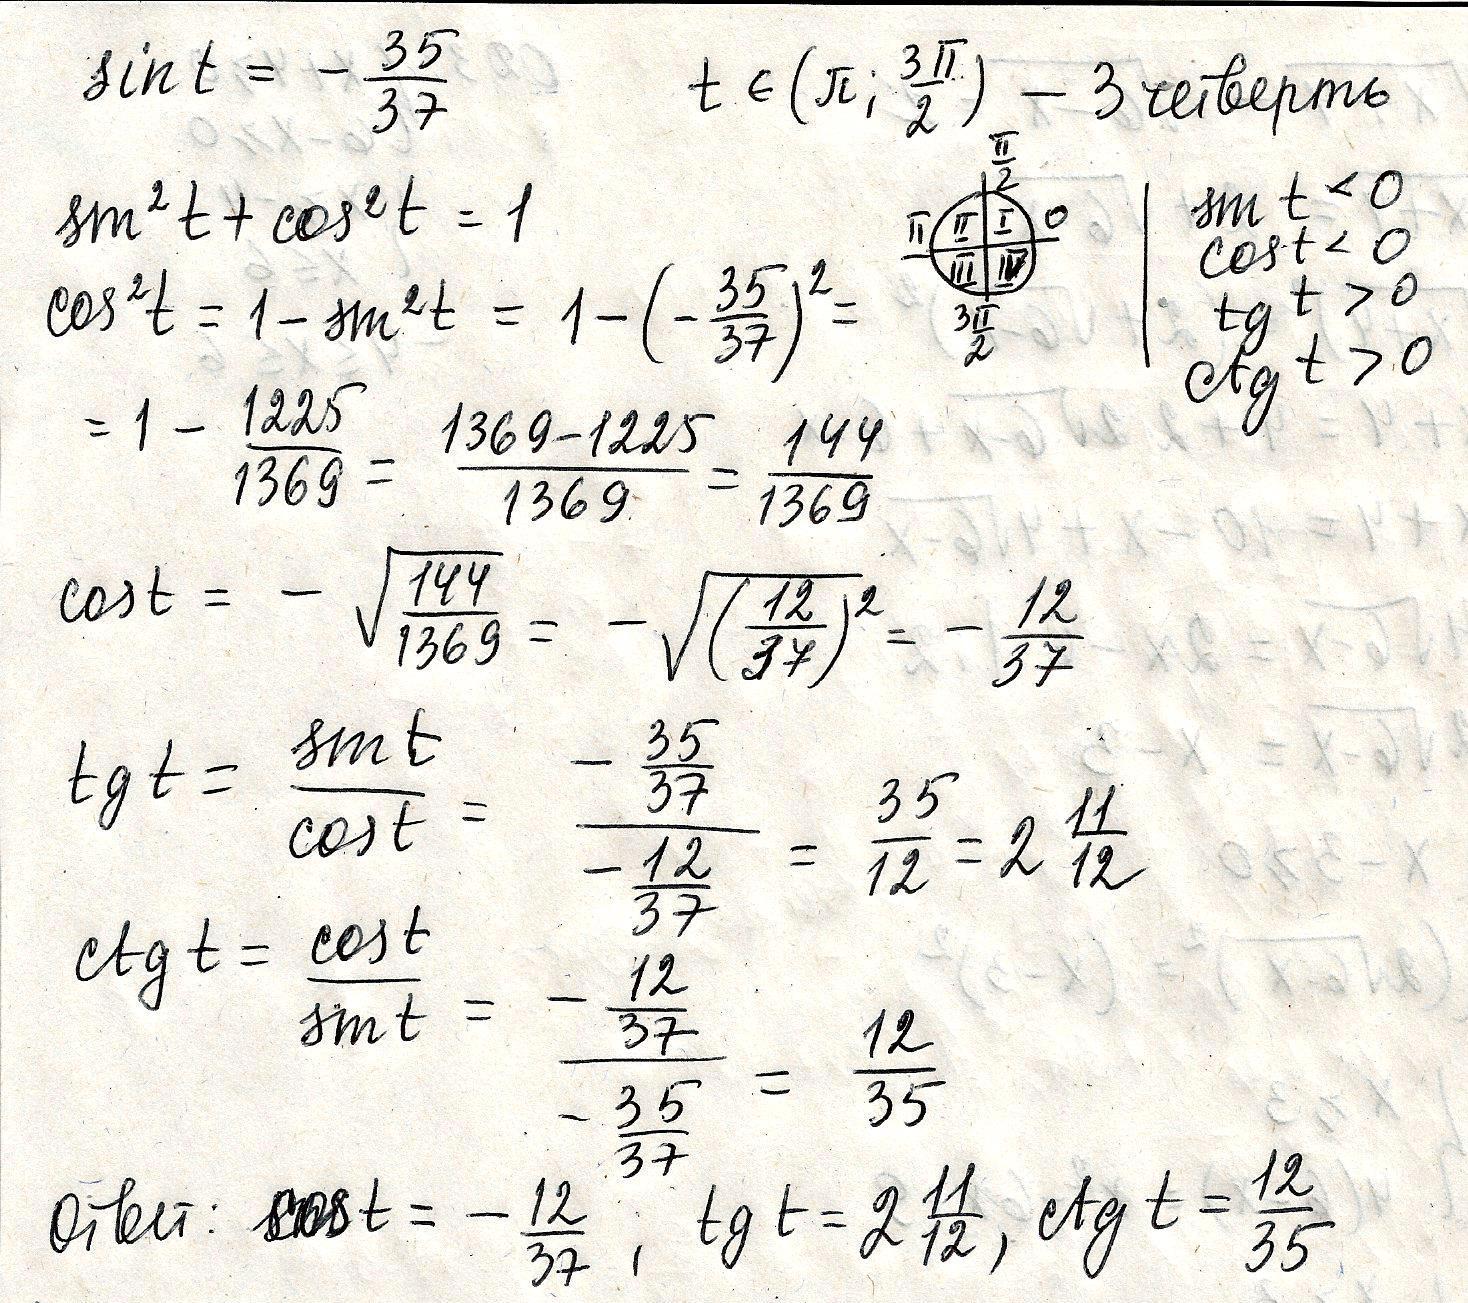 sin t = - 35/37    t ∈ (π; 3π/2) - 3 четверть
sin²t + cos²t = 1
π/2
π II I 0
III IV
3π/2
sin t < 0
cos t < 0
tg t > 0
ctg t > 0
cos²t = 1 - sin²t = 1 - (- 35/37)² =
= 1 - 1225/1369 = (1369-1225)/1369 = 144/1369
cos t = - √(144/1369) = - √((12/37)²) = - 12/37
tg t = sin t/cos t = (- 35/37)/(- 12/37) = 35/12 = 2 11/12
ctg t = cos t/sin t = (- 12/37)/(- 35/37) = 12/35
Ответ: cos t = - 12/37; tg t = 2 11/12, ctg t = 12/35